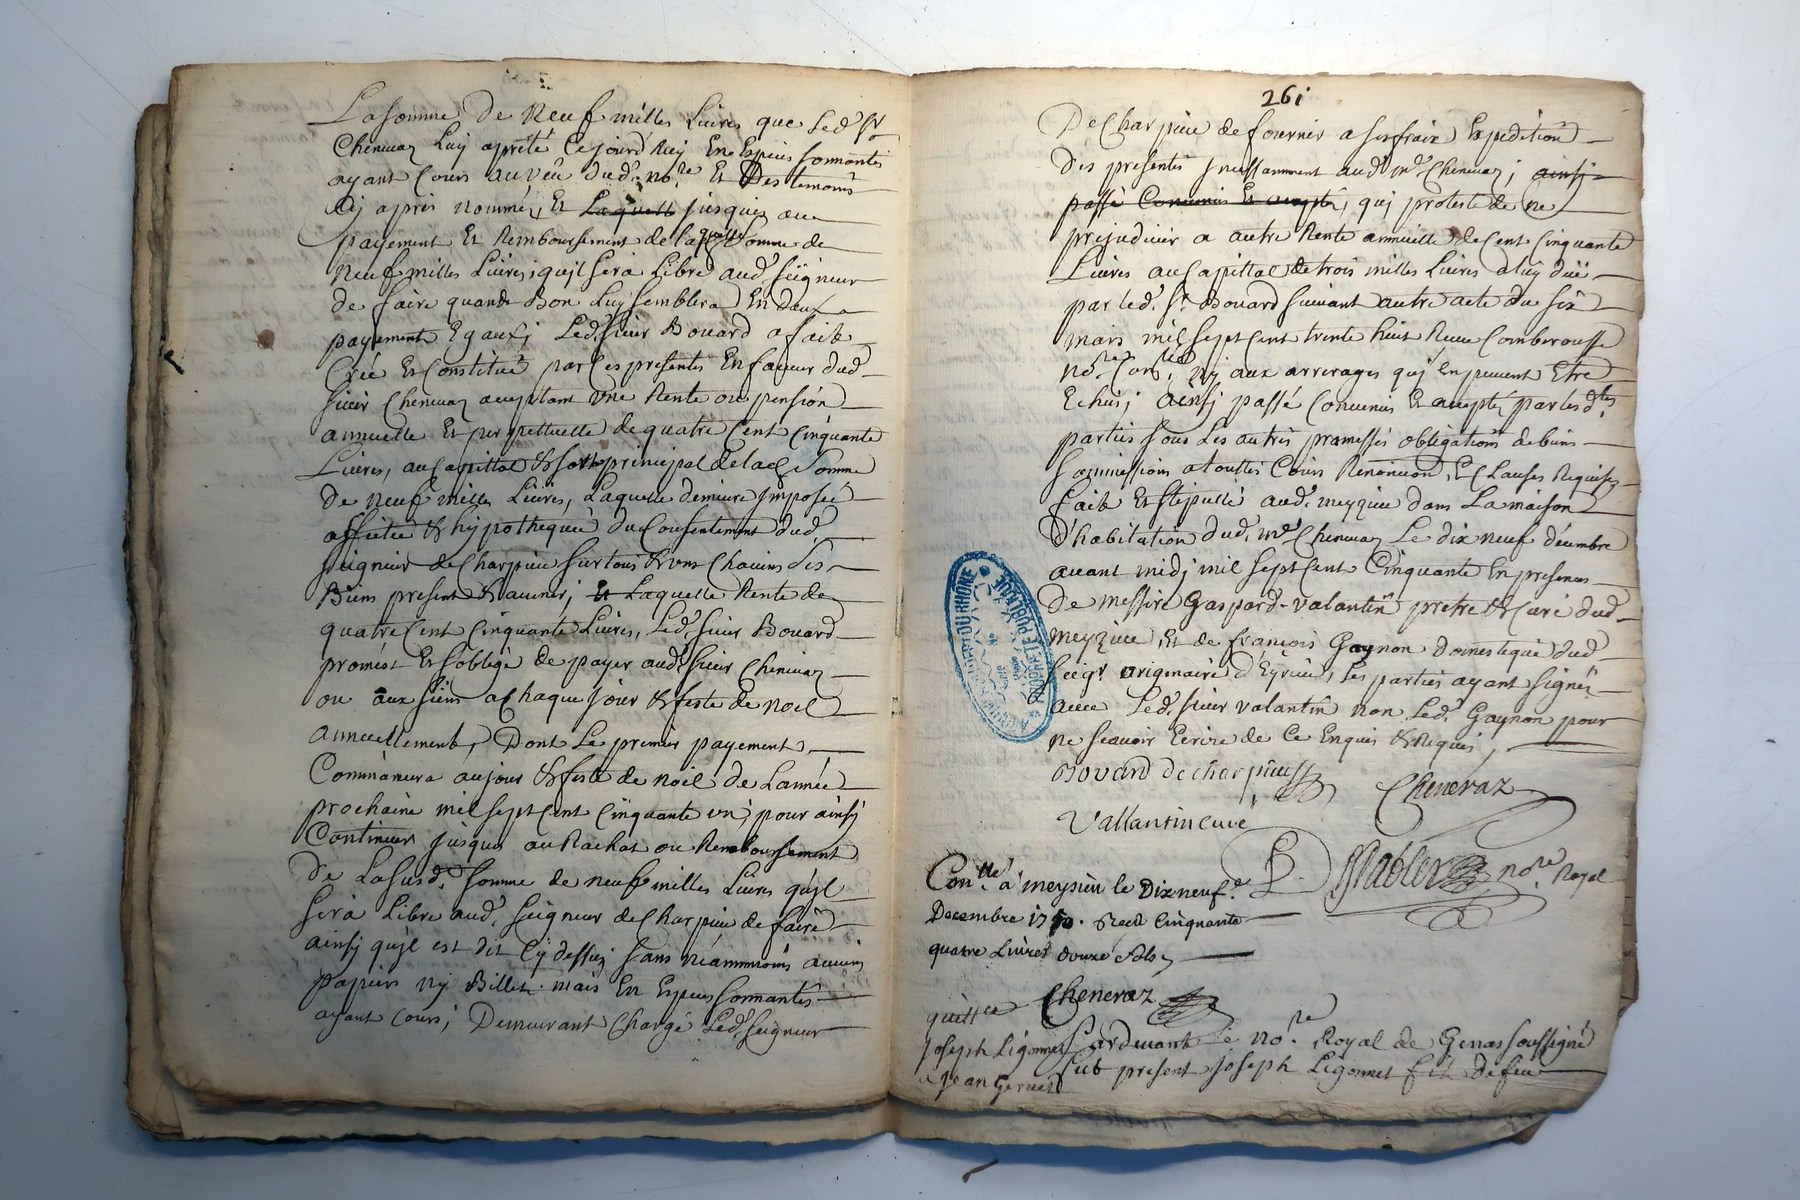 La somme de neuf milles Livres que Led. Sr
Cheneraz Luy a preté Cejourd'huy En Especes sonnantes
ayant Cours au veü dud. nore. Et Des temoins
Cy apres nommés, Et Laquelle jusques au
payement Et Remboursement de laquelle somme de
neuf milles Livres, qu'il sera Libre aud. seigneur
de faire quand Bon Luy semblera En deux
payements Egaux; Led. sieur Bouard a fait
Créé Et Constitué par Ces presentes En faveur dud.
sieur Cheneraz acceptant Une Rente ou pension
annuelle Et perpettuelle de quatre Cent Cinquante
Livres, au Capittal & sort principal de lad. somme
de neuf milles Livres, Laquelle demeure imposée
affectée & hypothequée du Consentement dud.
seigneur de Charpieu sur tous & uns Chacuns ses
Biens present & avenir; Et Laquelle Rente de
quatre Cent Cinquante Livres, Led. sieur Bouard
promest Et s'oblige de payer aud. sieur Cheneraz
ou aux siens a Chaque jour & feste de noel
annuellement, Dont Le premier payement
Commancera au jour & feste de noel de L'année
prochaine mil sept Cent Cinquante un; pour ainsy
Continuer jusques au Rachat ou Remboursement
De La susd. somme de neuf milles Livres qu'il
sera Libre aud. seigneur de Charpieu de faire
ainsy qu'il est dit Cy dessus sans néammoins aucuns
papiers ny Billets mais En Especes sonnantes
ayant Cours; Demeurant Chargé Led. seigneur
261
De Charpieu de fournir a ses fraix Expedition
des presentes aud. Mr Cheneraz; ainsy
passé Convenus Et accepté, qui proteste de ne
prejudicier a autre Rente annuelle de Cent Cinquante
Livres au Capittal de trois milles Livres a luy düe
par led. Sr. Bouard suivant autre acte du six
mars mil sept Cent trente huit Receu Comberousse
nore. ny aux arrerages qui En peuvent Etre
Echus; ainsy passé Convenus Et accepté par lesdtes.
parties sous Les autres promesses obligations de biens
soumissions a touttes Cours Renoncion, Et Clauses Requises
fait Et stipullé aud. meyzieu dans La maison
D'habitation dud. Mr Cheneraz Le dix neuf decembre
avant midy mil sept Cent Cinquante En presences
De messire Gaspard-Valantin pretre & Curé dud.
meyzieu, Et de françois Gaynon domestique dud.
seigr. originaire d'Eyrieu, Les parties ayant signés
avec Led. sieur Valantin non Led. Gaynon pour
ne sçavoir Ecrire de Ce Enquis & Requis,
Bovard de charpieux Cheneraz
Vallantin curé
Conlle. a meysieu le Dixneufe.
Decembre 1750. Recu Cinquante
quatre Livres douze sols,
nore. Royal
Cheneraz
quittce
Joseph Ligonnet
a Jean Gervais
Pardevant Le nore. Royal de Genas soussigné
fut present Joseph Ligonnet fils de feu
ARCHIVES DU DEPT DU RHONE
PROPRIETE PUBLIQUE